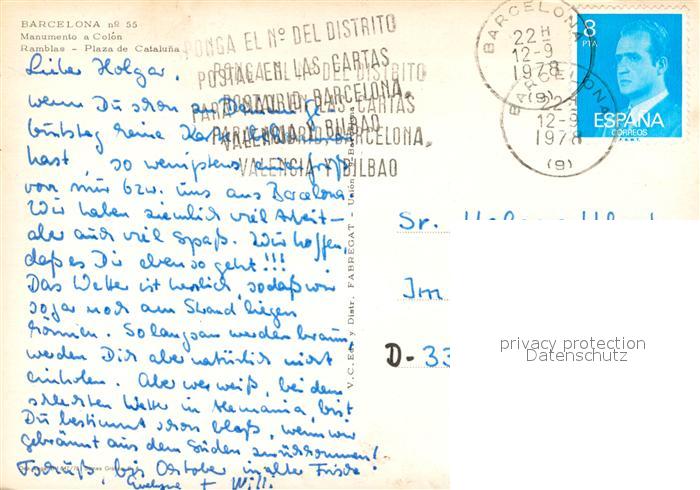 BARCELONA nº 55
Manumento a Colón
Ramblas - Plaza de Cataluña
PONGA EL Nº DEL DISTRITO
POSTAL EN LAS CARTAS
PARA MADRID, BARCELONA,
VALENCIA Y BILBAO
PONGA EL Nº DEL DISTRITO
POSTAL EN LAS CARTAS
PARA MADRID, BARCELONA,
VALENCIA Y BILBAO
BARCELONA
22H
12-9
1978
(9)
BARCELONA
22
12-9
1978
(9)
8
PTA
ESPAÑA
CORREOS
F.N.M.T.
Lieber Holger,
wenn Du schon
keine Karte
hast, so wenigstens
von mir bzw. uns aus Barcelona
Wir haben ziemlich viel Arbeit -
aber auch viel Spaß. Wir hoffen,
daß es Dir ebenso geht!!!
Das Wetter ist herrlich, sodaß wir
sogar noch am Strand liegen
können. So langsam werden braun,
werden Dich aber natürlich nicht
einholen. Aber wer weiß, bei dem
schlechten Wetter in Alemania, bist
Du bestimmt schon blaß, wenn wir
gebräunt aus dem Süden zurückkommen!
bis Oktober in alter Frische!
Evelyne + Willi
V. C. Ed. y Distr. FABREGAT - Unión
Sr.
Im
D-33
privacy protection
Datenschutz